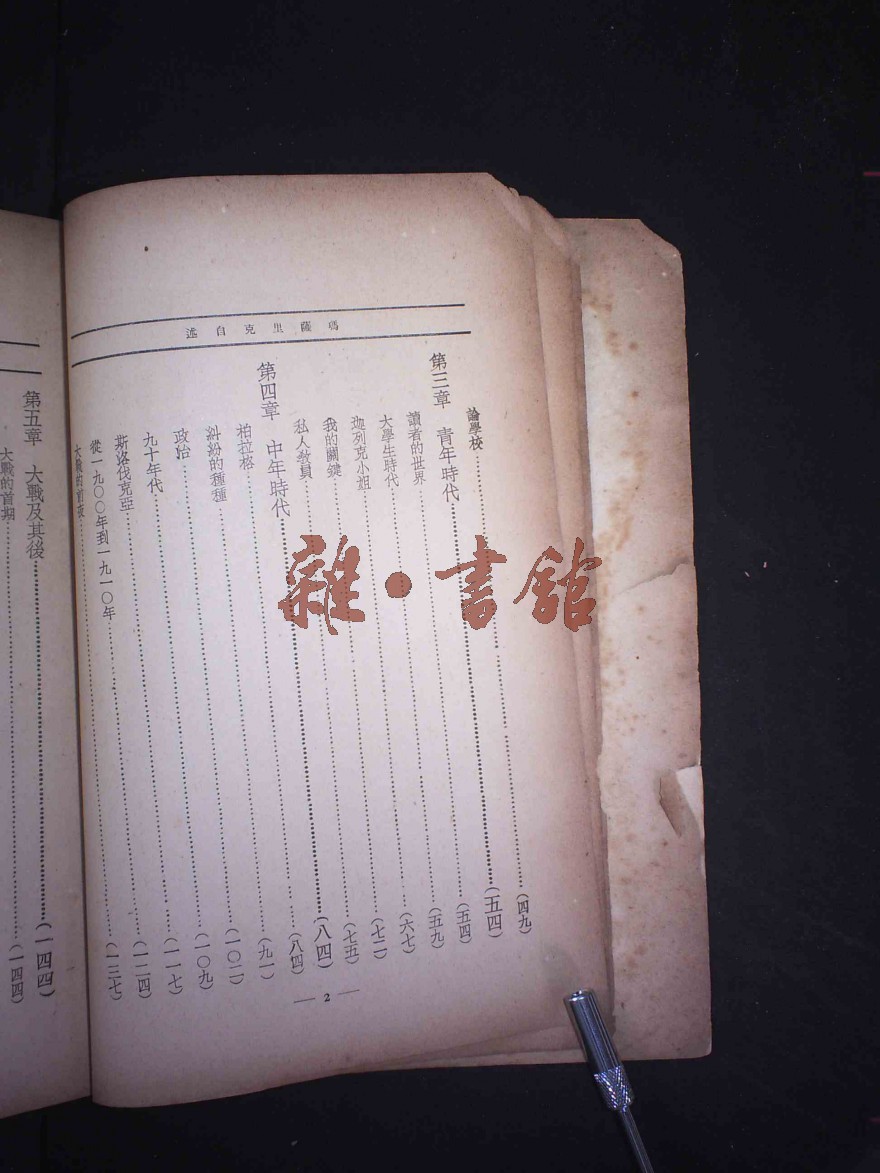 瑪薩里克自述
論學校……(四九)
第三章 青年時代……(五四)
讀者的世界……(五四)
大學生時代……(五九)
迦列克小姐……(六七)
我的關鍵……(七二)
私人教員……(七五)
第四章 中年時代……(八四)
柏拉格……(八四)
糾紛的種種……(九一)
政治……(一〇二)
九十年代……(一〇九)
斯洛伐克亞……(一一七)
從一九〇〇年到一九一〇年……(一二四)
大戰的前夜……(一三七)
— 2 —
第五章 大戰及其後……(一四四)
大戰的首期……(一四四)
雜·書館